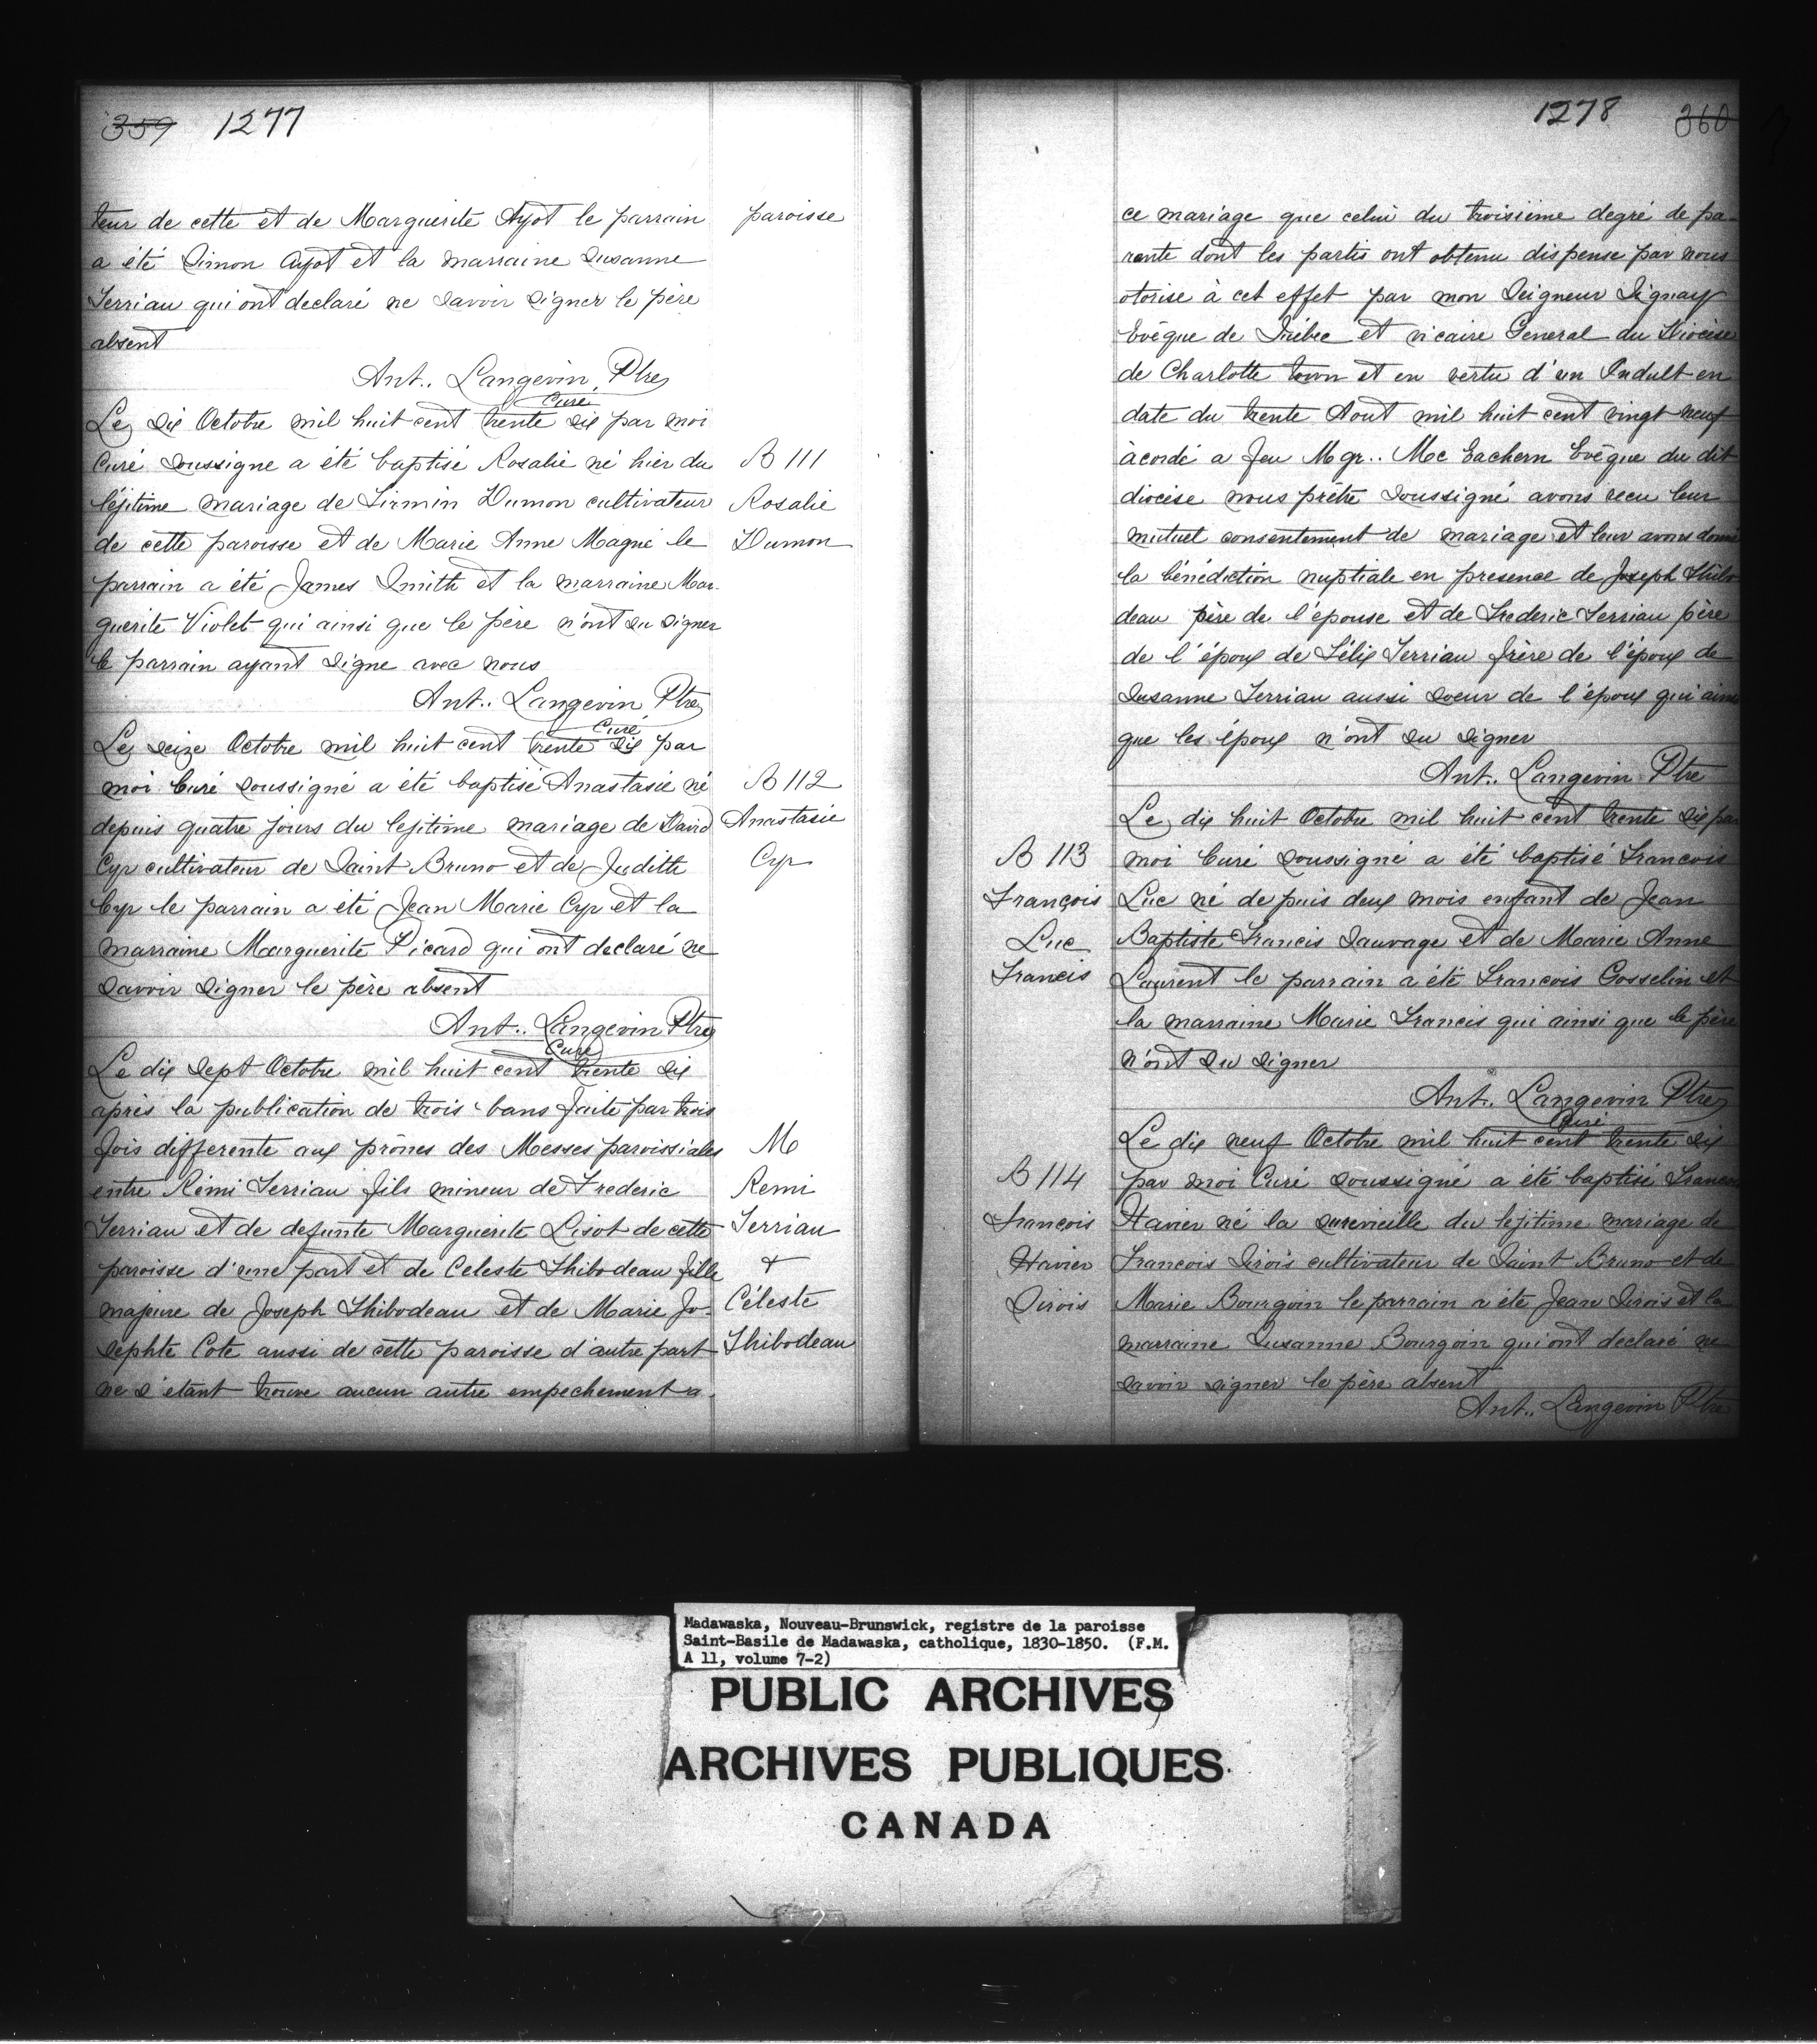 359 1277
teur de cette et de Marguerite Ayot le parrain paroisse
a été Simon Ayot et la marraine Susanne
Terriau qui ont declaré ne savoir signer le père
absent
Ant.. Langevin, Ptre
Curé
Le dix Octobre mil huit cent trente six par moi
Curé soussigne a été baptisé Rosalie né hier du B 111
légitime mariage de Firmin Dumon cultivateur Rosalie
de cette paroisse et de Marie Anne Magné le Dumon
parrain a été James Smith et la marraine Mar-
guerite Violet qui ainsi que le père n'ont su signer
le parrain ayant signe avec nous
Ant.. Langevin Ptre
Curé
Le seize Octobre mil huit cent trente six par
moi Curé soussigné a été baptisé Anastasie né B 112
depuis quatre jours du lejitime mariage de David Anastasie
Cyr cultivateur de Saint Bruno et de Judith Cyr
Cyr le parrain a été Jean Marie Cyr et la
marraine Marguerite Picard qui ont declaré ne
savoir signer le père absent
Ant.. Langevin Ptre
Curé
Le dix sept Octobre mil huit cent trente six
après la publication de trois bans faite par trois
fois differente aux prônes des Messes paroissiales M
entre Rémi Terriau fils mineur de Frederic Remi
Terriau et de defunte Marguerite Lisot de cette Terriau
paroisse d'une part et de Celeste Thibodeau fille +
majeure de Joseph Thibodeau et de Marie Jo- Céleste
sephte Cote aussi de cette paroisse d'autre part Thibodeau
ne s'étant trouve aucun autre empechement a
1278 360
ce mariage que celui du troisième degré de pa-
rente dont les partis ont obtenu dispense par nous
otorise à cet effet par mon Seigneur Signay
Evêque de Québec et vicaire General du Diocèse
de Charlotte town et en vertu d'un Indult en
date du trente Aout mil huit cent vingt neuf
àcordé a feu Mgr.. Mc Eachern Evêque du dit
diocèse nous prêtre soussigné avons recu leur
mutuel consentement de mariage et leur avons donné
la bénédiction nuptiale en presence de Joseph Thibo
deau père de l'épouse et de Frederic Terriau père
de l'époux de Félix Terriau frère de l'époux de
Susanne Terriau aussi soeur de l'époux qui ainsi
que les époux n'ont su signer
Ant.. Langevin Ptre
Le dix huit Octobre mil huit cent trente six par
B 113 moi Curé soussigné a été baptisé Francois
François Luc né depuis deux mois enfant de Jean
Luc Baptiste Francis Sauvage et de Marie Anne
Francis Laurent le parrain a été Francois Gosselin et
la marraine Marie Francis qui ainsi que le père
n'ont su signer
Ant. Langevin Ptre
Curé
Le dix neuf Octobre mil huit cent trente six
B 114 par moi Curé soussigné a été baptisé Francois
François Havier né la surevieille du lejitime mariage de
Havier Francois Sirois cultivateur de Saint Bruno et de
Sirois Marie Bourgoin le parrain a été Jean Sirois et la
marraine Susanne Bourgoin qui ont declaré ne
savoir signer le père absent
Ant.. Langevin Ptre
Madawaska, Nouveau-Brunswick, registre de la paroisse
Saint-Basile de Madawaska, catholique, 1830-1850. (F.M.
A 11, volume 7-2)
PUBLIC ARCHIVES
ARCHIVES PUBLIQUES
CANADA